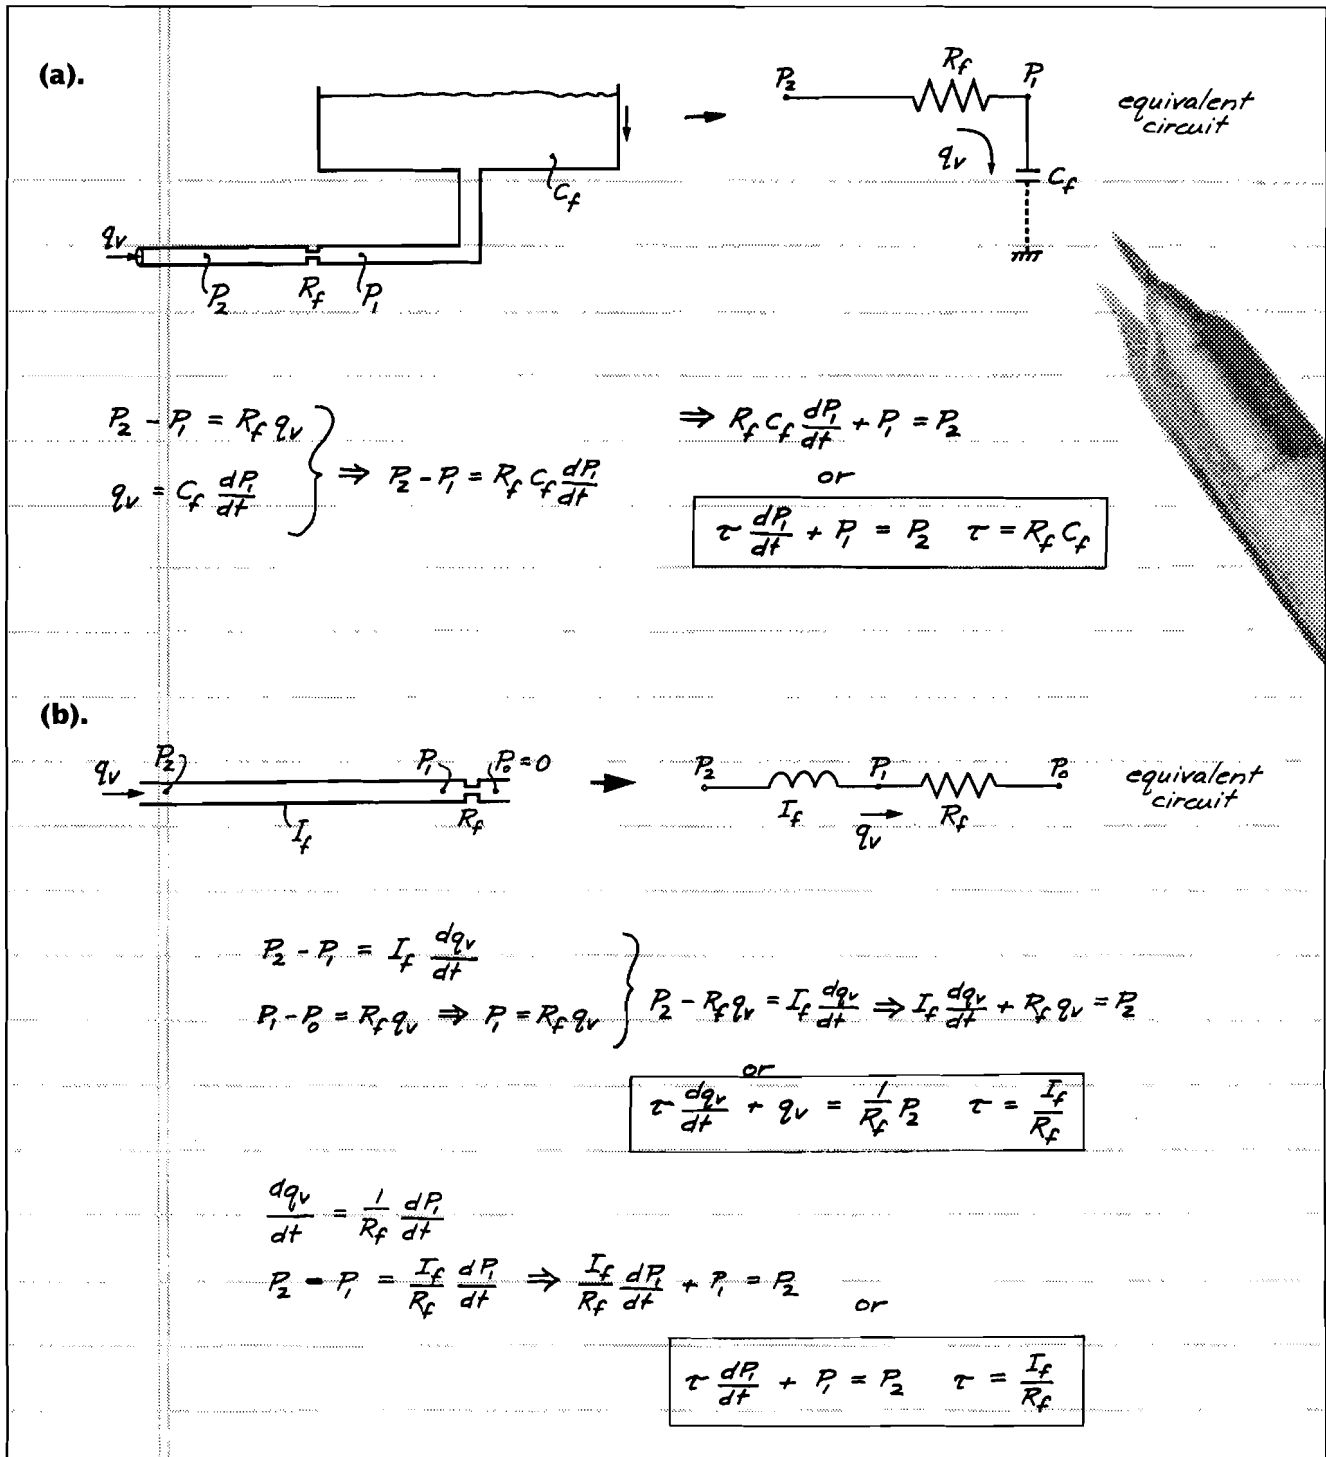 (a).
P₂ R_f P₁ equivalent circuit
q_v C_f
C_f
q_v P₂ R_f P₁
P₂ - P₁ = R_f q_v
q_v = C_f dP₁/dt
⇒ P₂ - P₁ = R_f C_f dP₁/dt
⇒ R_f C_f dP₁/dt + P₁ = P₂
or
τ dP₁/dt + P₁ = P₂ τ = R_f C_f
(b).
q_v P₂ P₁ P₀ = 0
I_f R_f
P₂ P₁ P₀ equivalent circuit
I_f q_v R_f
P₂ - P₁ = I_f dq_v/dt
P₁ - P₀ = R_f q_v ⇒ P₁ = R_f q_v
P₂ - R_f q_v = I_f dq_v/dt ⇒ I_f dq_v/dt + R_f q_v = P₂
or
τ dq_v/dt + q_v = 1/R_f P₂ τ = I_f/R_f
dq_v/dt = 1/R_f dP₁/dt
P₂ - P₁ = I_f/R_f dP₁/dt ⇒ I_f/R_f dP₁/dt + P₁ = P₂
or
τ dP₁/dt + P₁ = P₂ τ = I_f/R_f